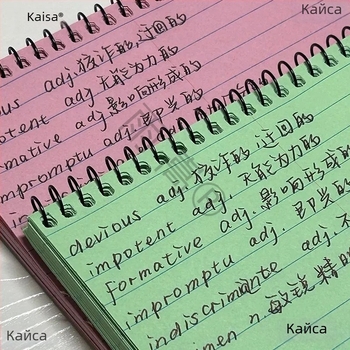 Kaisa®
Кайса
ous adj.狡诈的,迂回的
potent adj.无能为力的
mative adj.影响形成的
mpromptu adj.即兴的
devious adj.狡诈的,迂回的
impotent adj.无能为力的
formative adj.影响形成的
impromptu adj.即兴的
indiscriminate adj.不
men n.敏锐精明
Кайса
Кайса